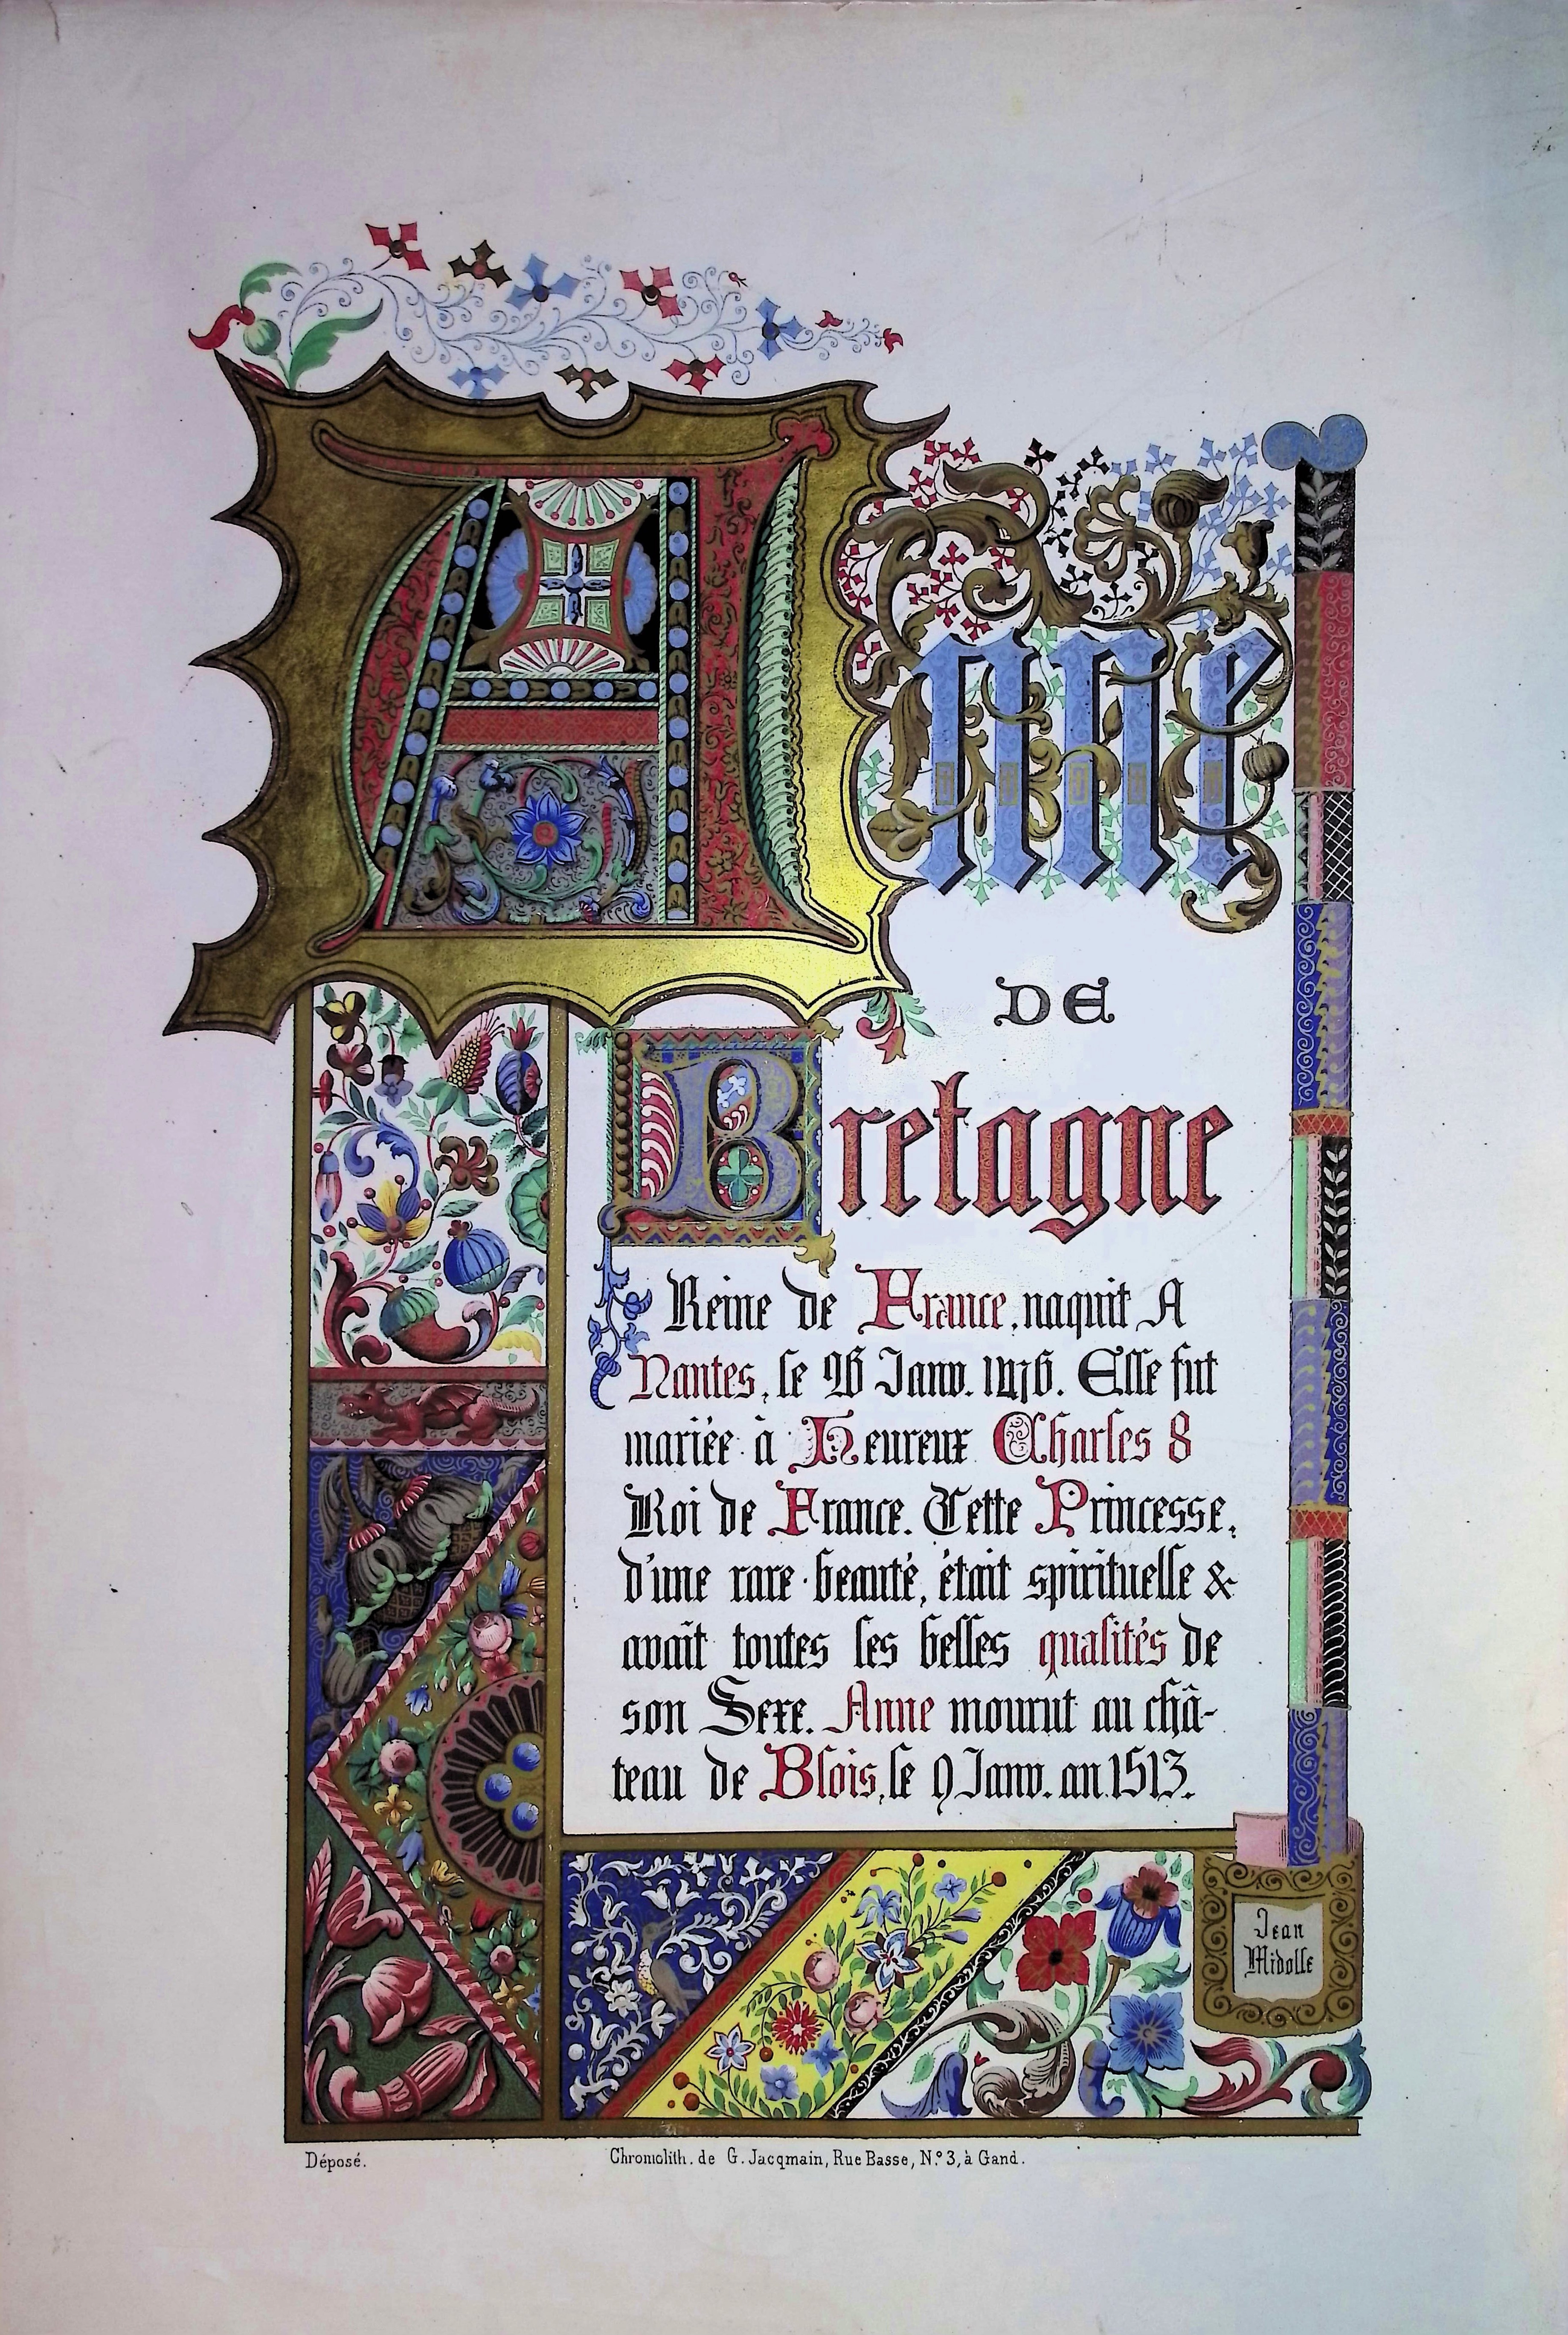 Anne
DE
Bretagne
Reine de France, naquit A
Nantes, le 26 Janv. 1476. Elle fut
mariée à Heureux Charles 8
Roi de France. Cette Princesse,
d'une rare beauté, était spirituelle &
avait toutes les belles qualités de
son Sexe. Anne mourut au châ-
teau de Blois, le 9 Janv. an 1513.
Jean
Midolle
Déposé.
Chromolith. de G. Jacqmain, Rue Basse, N.º 3, à Gand.